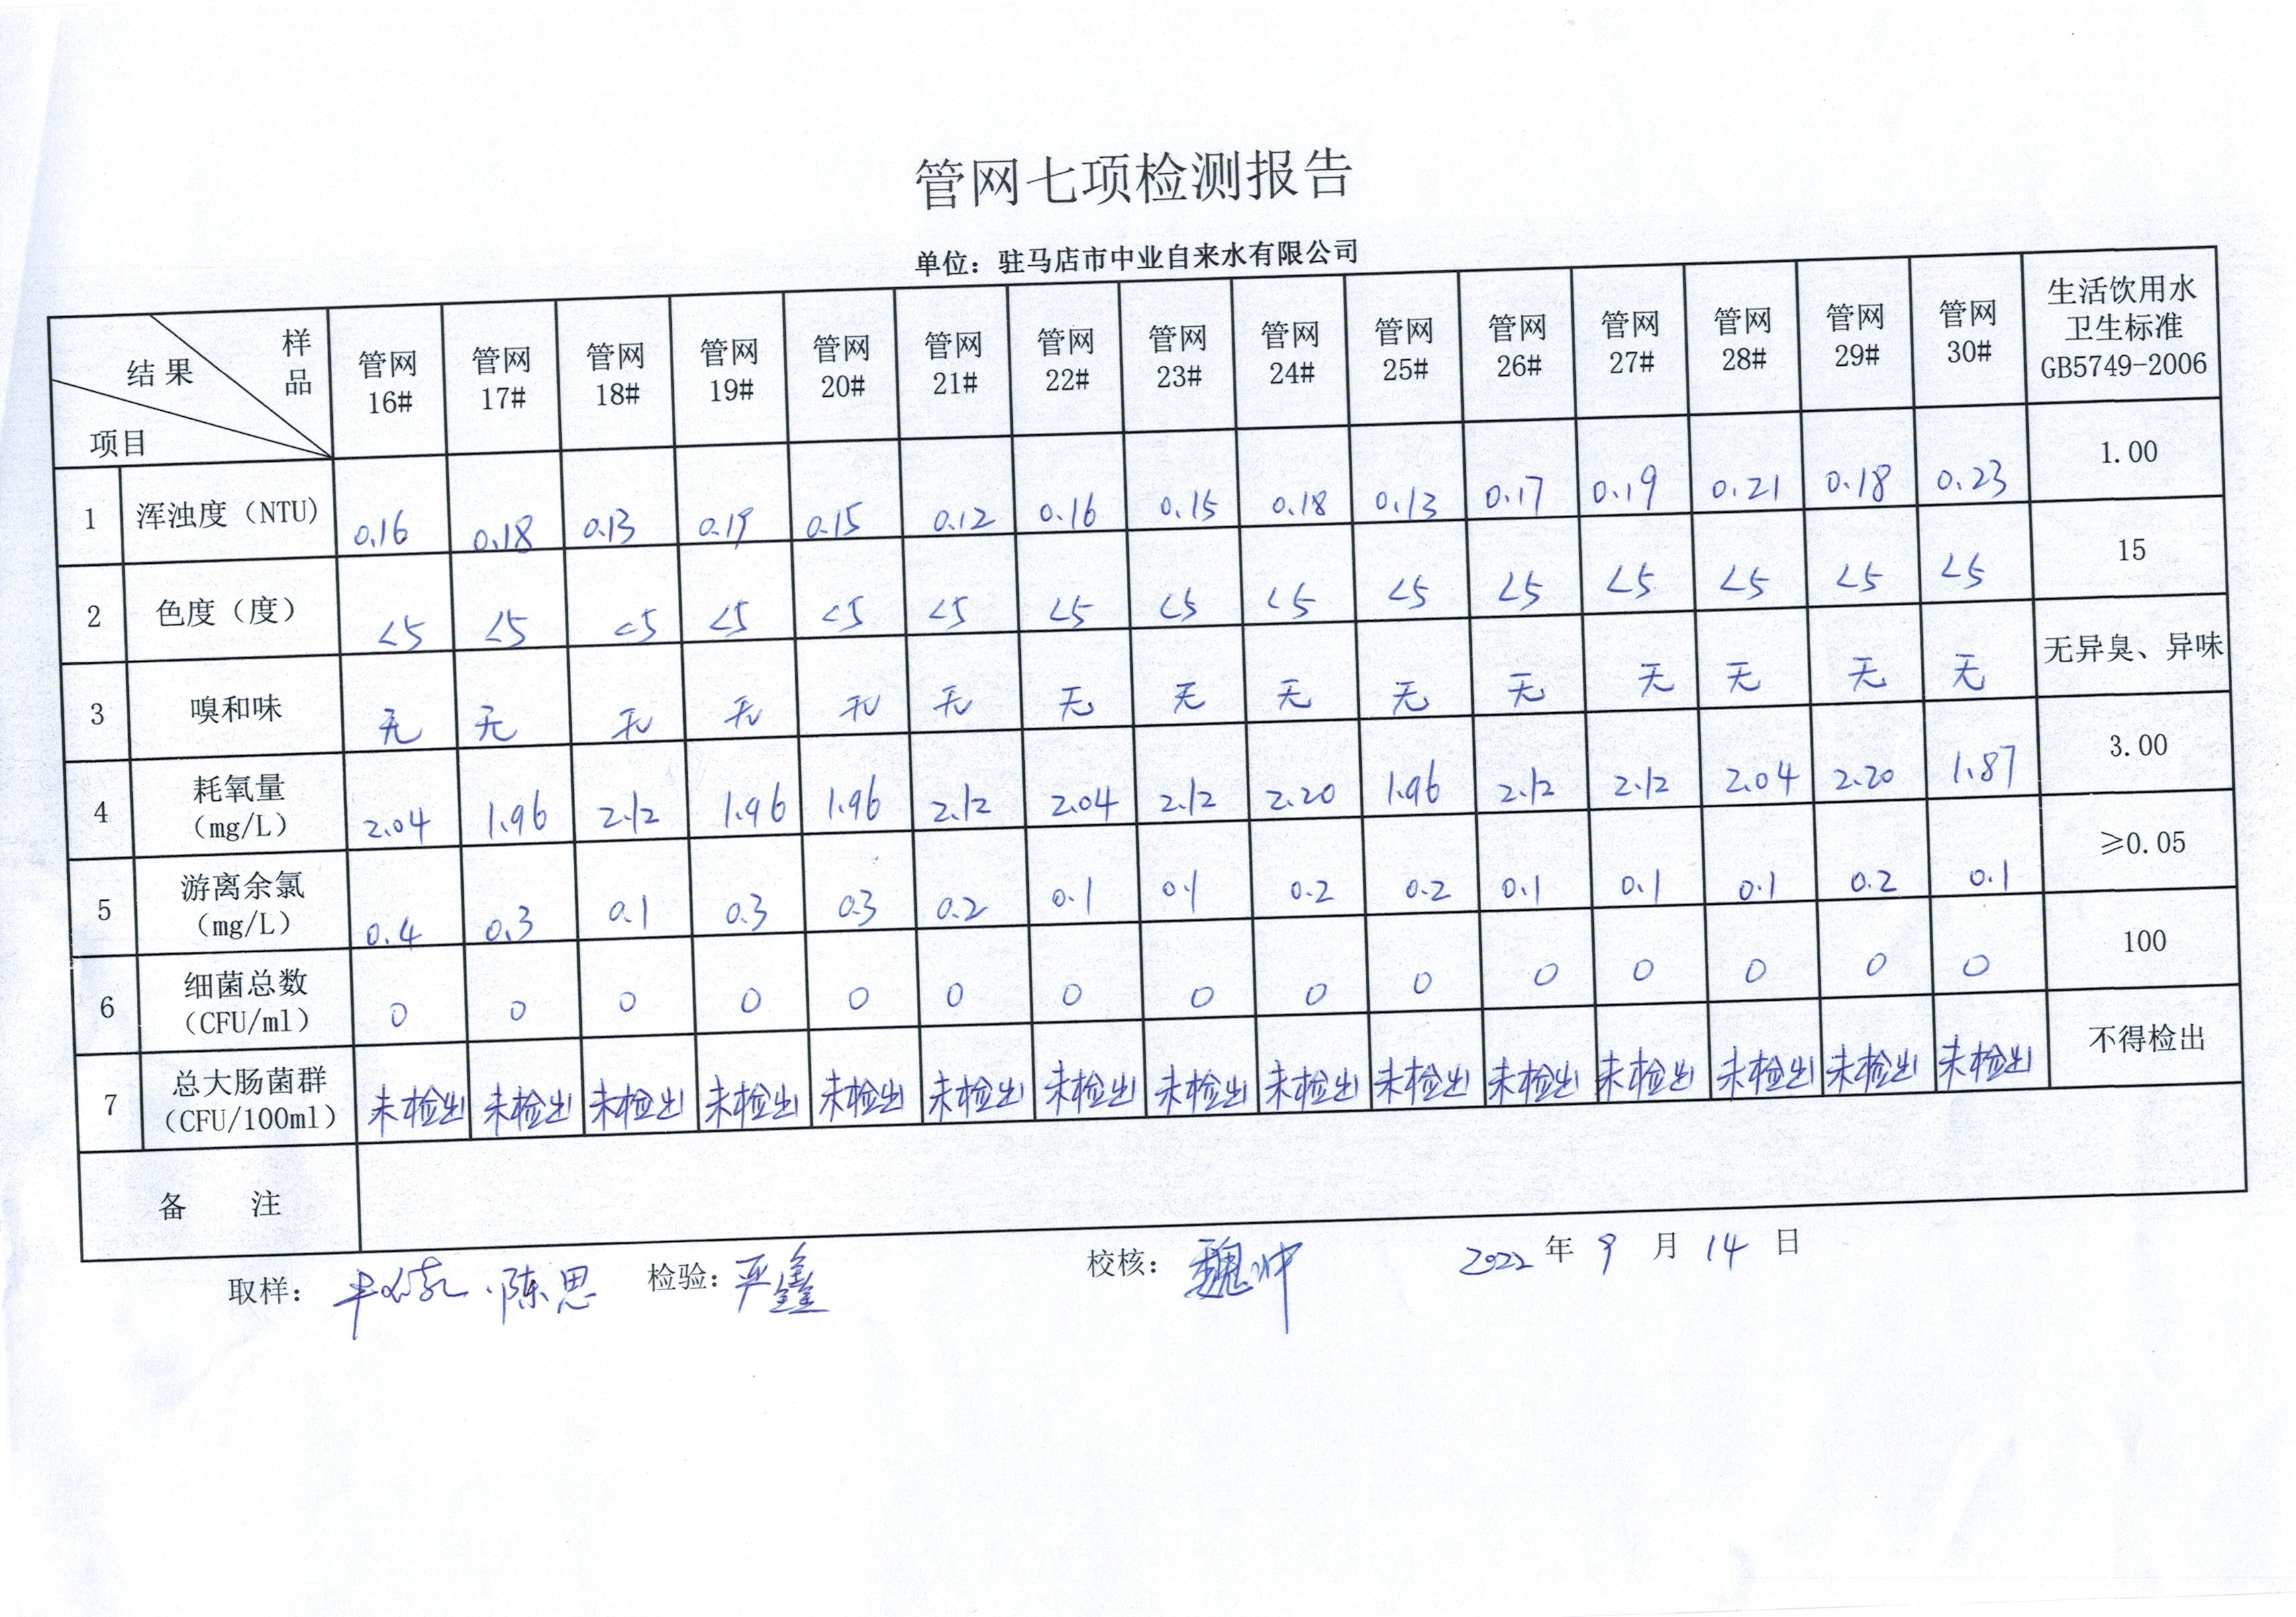 管网七项检测报告
单位：驻马店市中业自来水有限公司
结果 样品 项目 管网16# 管网17# 管网18# 管网19# 管网20# 管网21# 管网22# 管网23# 管网24# 管网25# 管网26# 管网27# 管网28# 管网29# 管网30# 生活饮用水卫生标准GB5749-2006
1 浑浊度（NTU) 0.16 0.18 0.13 0.19 0.15 0.12 0.16 0.15 0.18 0.13 0.17 0.19 0.21 0.18 0.23 1.00
2 色度（度） <5 <5 <5 <5 <5 <5 <5 <5 <5 <5 <5 <5 <5 <5 <5 15
3 嗅和味 无 无 无 无 无 无 无 无 无 无 无 无 无 无 无 无异臭、异味
4 耗氧量（mg/L） 2.04 1.96 2.12 1.96 1.96 2.12 2.04 2.12 2.20 1.96 2.12 2.12 2.04 2.20 1.87 3.00
5 游离余氯（mg/L） 0.4 0.3 0.1 0.3 0.3 0.2 0.1 0.1 0.2 0.2 0.1 0.1 0.1 0.2 0.1 ≥0.05
6 细菌总数（CFU/ml） 0 0 0 0 0 0 0 0 0 0 0 0 0 0 0 100
7 总大肠菌群（CFU/100ml） 未检出 未检出 未检出 未检出 未检出 未检出 未检出 未检出 未检出 未检出 未检出 未检出 未检出 未检出 未检出 不得检出
备 注
取样： 陈思 检验：严鑫 校核：魏冲 2022 年 9 月 14 日